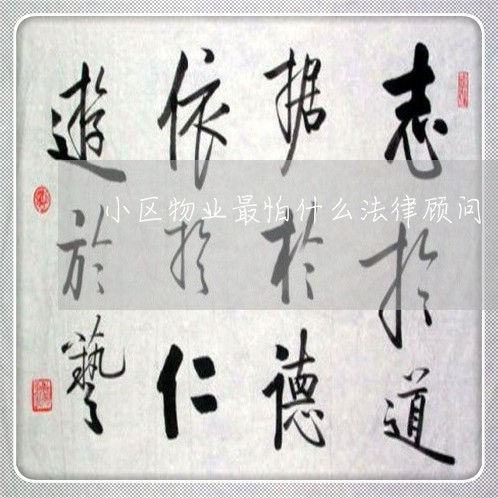 志於道
据於德
依於仁
遊於藝
小区物业最怕什么法律顾问